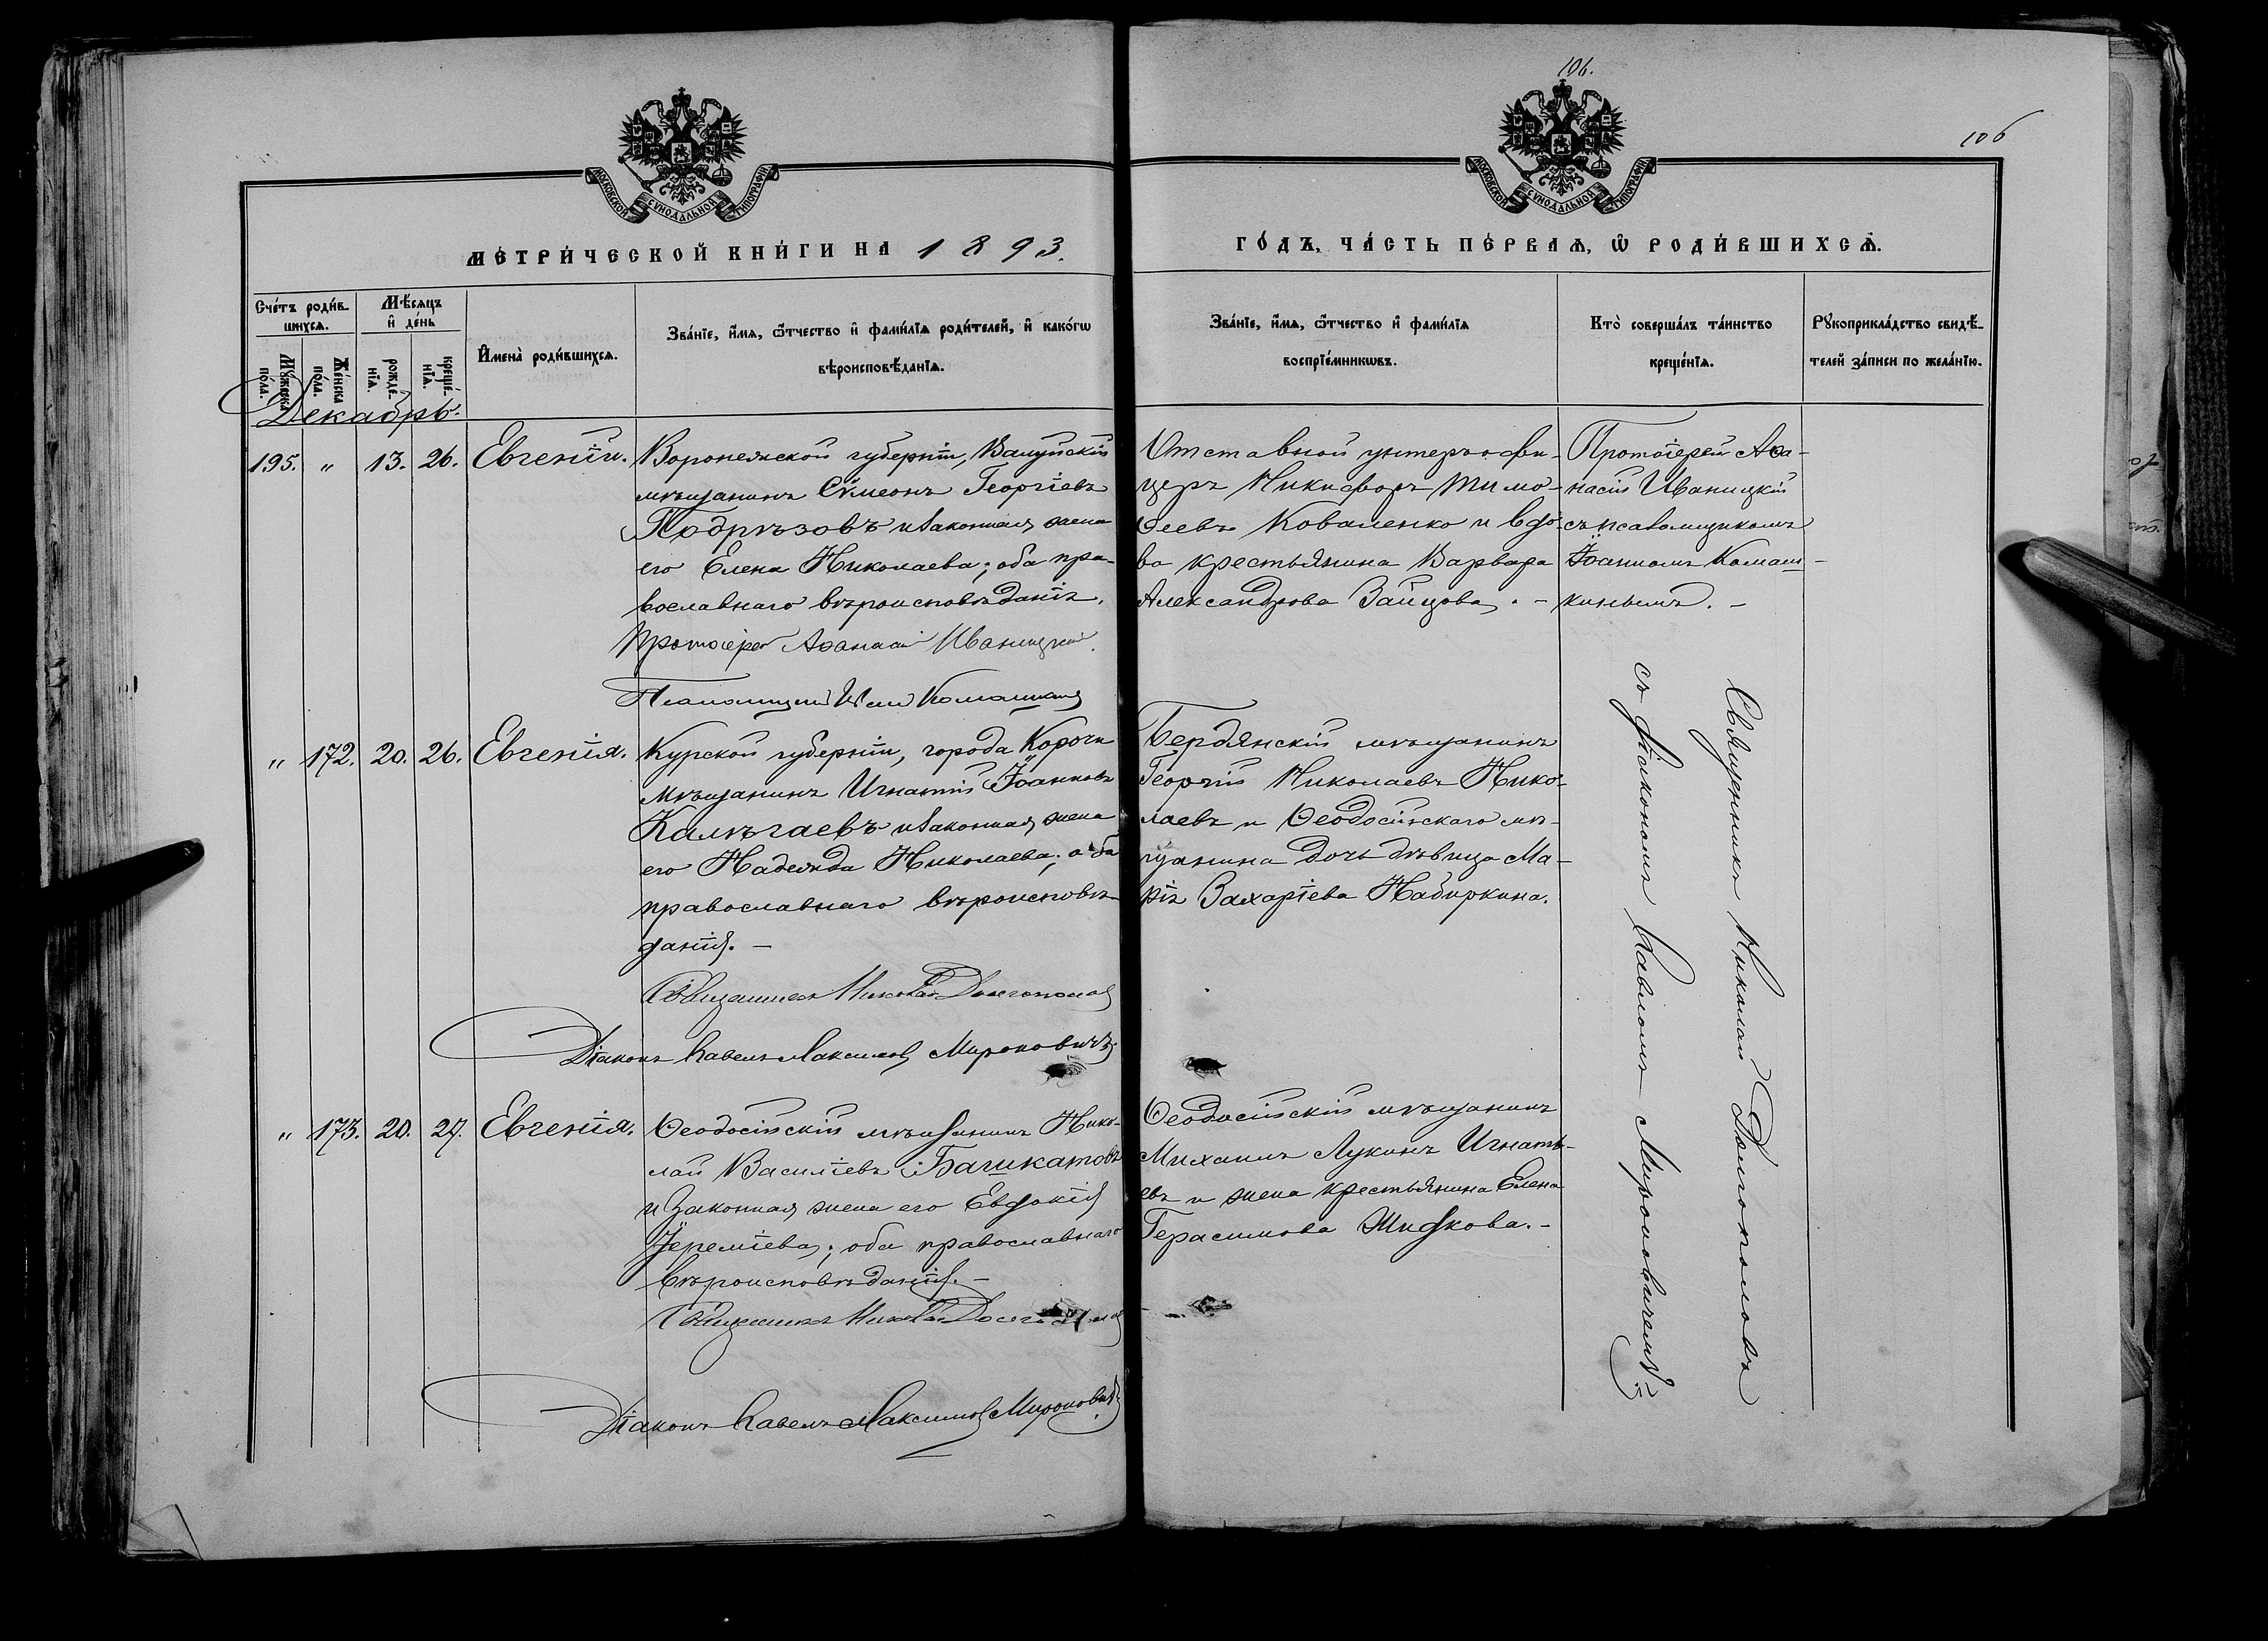 106.
106
МОСКОВСКОЙ СѴНОДАЛЬНОЙ ТИПОГРАФІИ
МОСКОВСКОЙ СѴНОДАЛЬНОЙ ТИПОГРАФІИ
МЕТРИ́ЧЕСКОЙ КНИ́ГИ НА 1893.
ГО́ДЪ, ЧА́СТЬ ПЕ́РВАѦ, Ѿ РОДИ́ВШИХСѦ.
Сче́тъ роди́в-
шихсѧ.
Мꙋ́жеска
по́ла.
Же́нска
по́ла.
Мѣ́сѧцъ
и҆ де́нь
рожде́-
нїѧ.
креще́-
нїѧ.
И҆мена̀ роди́вшихсѧ.
Зва́нїе, и҆́мѧ, ѻ҆́тчество и҆ фами́лїѧ роди́телей, и҆ како́гѡ
вѣроисповѣ́данїѧ.
Зва́нїе, и҆́мѧ, ѻ҆́тчество и҆ фами́лїѧ
воспрїе́мникѡвъ.
Кто̀ соверша́лъ та́инство
креще́нїѧ.
Рꙋкоприкла́дство свидѣ́-
телей за́писи по жела́нїю.
Декабрь.
195. " 13. 26. Евгеній.
Воронежской губерніи, Валуйскій
мѣщанинъ Сѵмеонъ Георгіевъ
Подрѣзовъ и законная жена
его Елена Николаева; оба пра-
вославнаго вѣроисповѣданія.
Протоіерей Аѳанасій Иваницкій.
Псаломщикъ Иванъ Комашкинъ
Отставной унтеръ-офи-
церъ Никифоръ Тимо-
ѳеевъ Коваленко и вдо-
ва крестьянина Варвара
Александрова Зайцова. -
Протоіерей Аѳа-
насій Иваницкій
съ псаломщикомъ
Іоанномъ Комаш-
кинымъ. -
" 172. 20. 26. Евгенія.
Курской губерніи, города Корочи
мѣщанинъ Игнатій Іоанновъ
Калмыгаевъ и законная жена
его Надежда Николаева; оба
православнаго вѣроисповѣ-
данія. -
Священникъ Николай Долгополовъ
Діаконъ Павелъ Максимовъ Мироновичъ
Бердянскій мѣщанинъ
Георгій Николаевъ Нико-
лаевъ и Ѳеодосійскаго мѣ-
щанина дочь дѣвица Ма-
рія Захаріева Набиркина.
Священникъ Николай Долгополовъ
съ діакономъ Павломъ Мироновичемъ
" 173. 20. 27. Евгенія.
Ѳеодосійскій мѣщанинъ Нико-
лай Василіевъ Башкатовъ
и законная жена его Евдокія
Іереміева; оба православнаго
вѣроисповѣданія. -
Священникъ Николай Долгополовъ
Діаконъ Павелъ Максимовъ Мироновичъ
Ѳеодосійскій мѣщанинъ
Михаилъ Лукинъ Игнать-
евъ и жена крестьянина Елена
Герасимова Жидкова. -